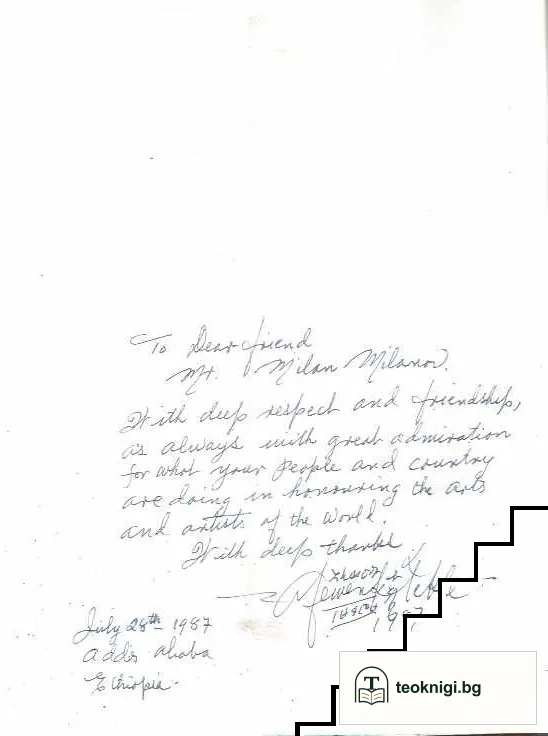 To Dear friend
Mr. Milan Milanov.
With deep respect and friendship,
as always with great admiration
for what your People and country
are doing in honouring the arts
and artists of the World.
With deep thanks
1987
July 28th 1987
Addis Ababa
Ethiopia.
teoknigi.bg